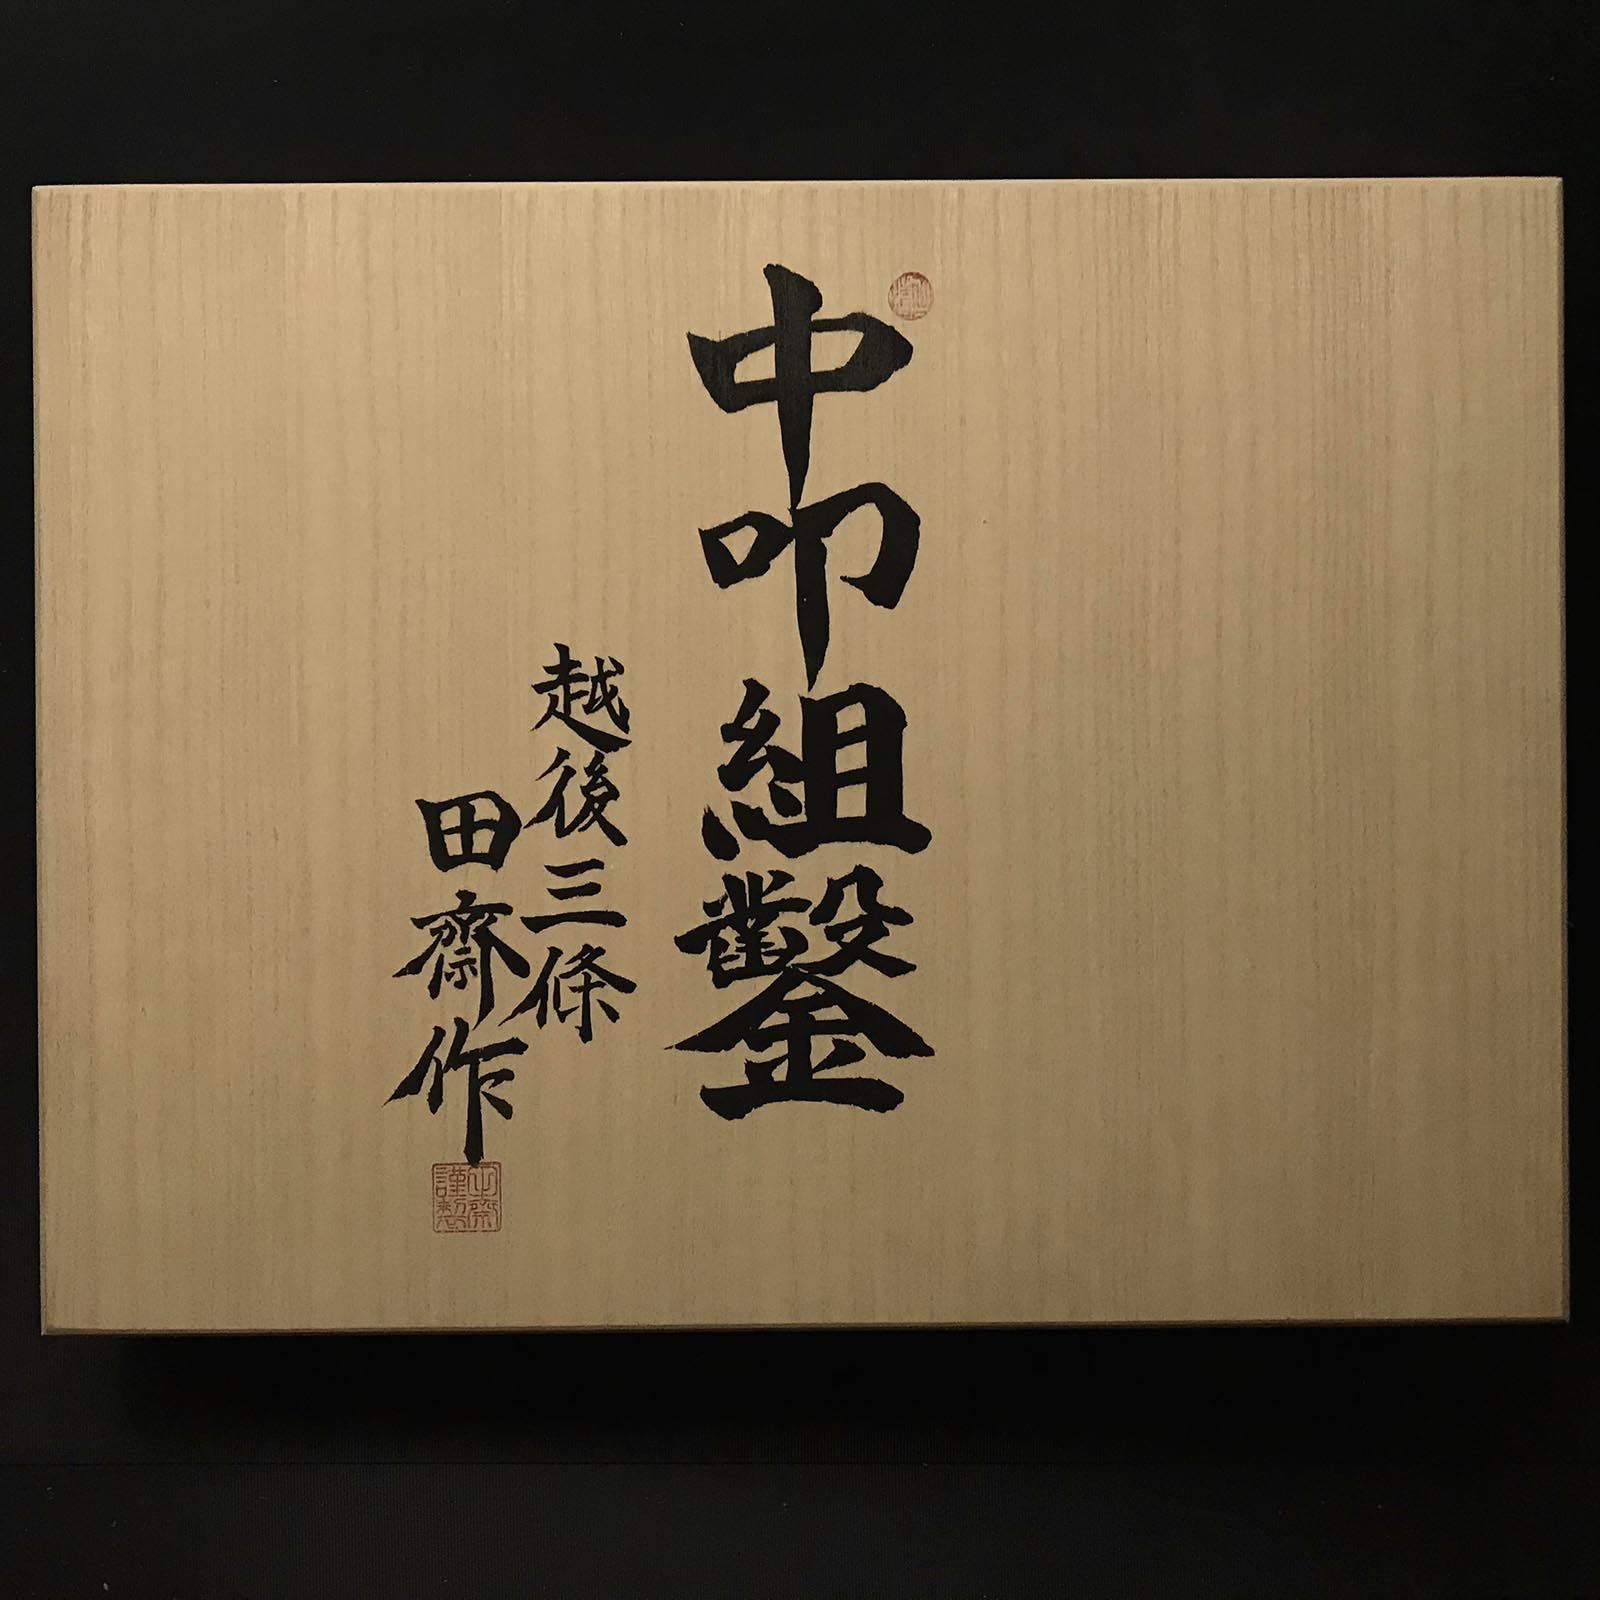 中叩組鑿
越後三條
田齋作
謹製